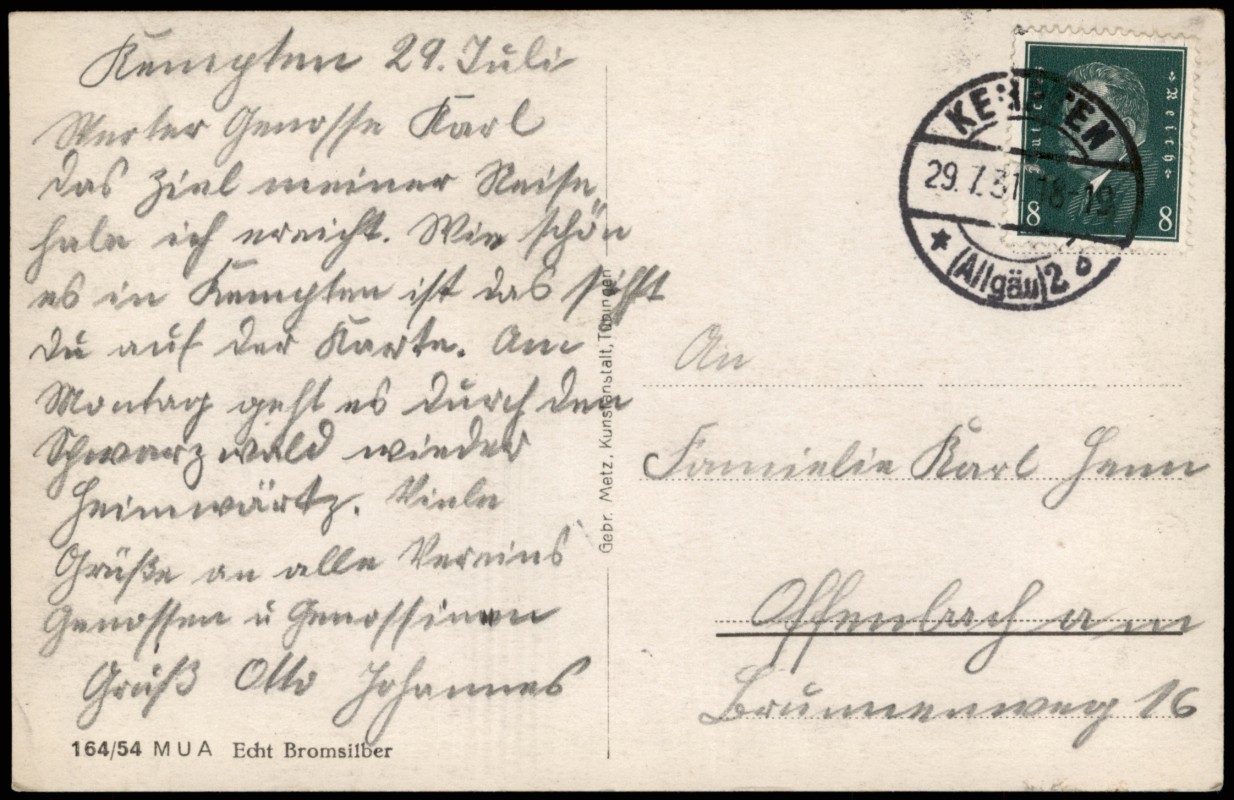 Kempten 29. Juli
Werter Genosse Karl
das Ziel meiner Reise
habe ich erreicht. Wie schön
es in Kempten ist das sihst
du auf der Karte. Am
Montag geht es durch den
Schwarzwald wieder
heimwärtz. Viele
Grüße an alle Vereins
Genossen u Genossinen
Gruß Otto Johannes
164/54 MUA Echt Bromsilber
Gebr. Metz, Kunstanstalt, Tübingen
Deutsches
Reich
8 8
KEMPTEN
29.7.31 18-19
(Allgäu) 2 b
An
Familie Karl Henn
Offenbach a m
Brunnenweg 16